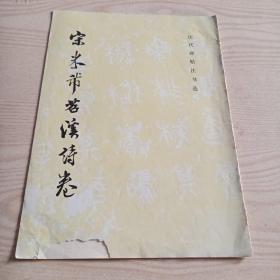 宋米芾苕溪詩卷
历代碑帖法书选